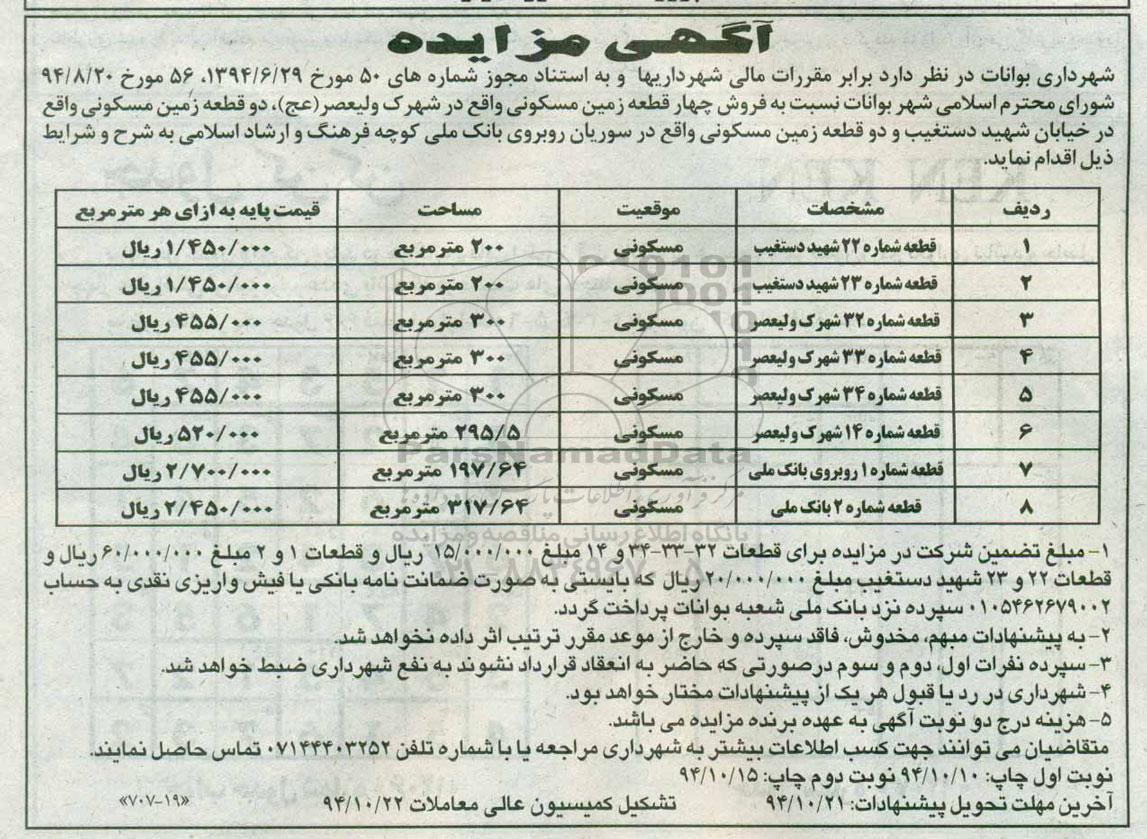 آگهی مزایده
شهرداری بوانات در نظر دارد برابر مقررات مالی شهرداریها و به استناد مجوز شماره های ۵۰ مورخ ۱۳۹۴/۶/۲۹، ۵۶ مورخ ۹۴/۸/۲۰
شورای محترم اسلامی شهر بوانات نسبت به فروش چهار قطعه زمین مسکونی واقع در شهرک ولیعصر(عج)، دو قطعه زمین مسکونی واقع
در خیابان شهید دستغیب و دو قطعه زمین مسکونی واقع در سوریان روبروی بانک ملی کوچه فرهنگ و ارشاد اسلامی به شرح و شرایط
ذیل اقدام نماید.
ردیف مشخصات موقعیت مساحت قیمت پایه به ازای هر مترمربع
۱ قطعه شماره ۲۲ شهید دستغیب مسکونی ۲۰۰ مترمربع ۱/۴۵۰/۰۰۰ ریال
۲ قطعه شماره ۲۳ شهید دستغیب مسکونی ۲۰۰ مترمربع ۱/۴۵۰/۰۰۰ ریال
۳ قطعه شماره ۳۲ شهرک ولیعصر مسکونی ۳۰۰ مترمربع ۴۵۵/۰۰۰ ریال
۴ قطعه شماره ۳۳ شهرک ولیعصر مسکونی ۳۰۰ مترمربع ۴۵۵/۰۰۰ ریال
۵ قطعه شماره ۳۴ شهرک ولیعصر مسکونی ۳۰۰ مترمربع ۴۵۵/۰۰۰ ریال
۶ قطعه شماره ۱۴ شهرک ولیعصر مسکونی ۲۹۵/۵ مترمربع ۵۲۰/۰۰۰ ریال
۷ قطعه شماره ۱ روبروی بانک ملی مسکونی ۱۹۷/۶۴ مترمربع ۲/۷۰۰/۰۰۰ ریال
۸ قطعه شماره ۲ بانک ملی مسکونی ۳۱۷/۶۴ مترمربع ۲/۴۵۰/۰۰۰ ریال
ParsNamadData
پایگاه اطلاع رسانی مناقصه و مزایده
۱- مبلغ تضمین شرکت در مزایده برای قطعات ۳۲-۳۳-۳۴ و ۱۴ مبلغ ۱۵/۰۰۰/۰۰۰ ریال و قطعات ۱ و ۲ مبلغ ۶۰/۰۰۰/۰۰۰ ریال و
قطعات ۲۲ و ۲۳ شهید دستغیب مبلغ ۲۰/۰۰۰/۰۰۰ ریال که بایستی به صورت ضمانت نامه بانکی یا فیش واریزی نقدی به حساب
۰۱۰۵۴۶۲۶۷۹۰۰۲ سپرده نزد بانک ملی شعبه بوانات پرداخت گردد.
۲- به پیشنهادات مبهم، مخدوش، فاقد سپرده و خارج از موعد مقرر ترتیب اثر داده نخواهد شد.
۳- سپرده نفرات اول، دوم و سوم درصورتی که حاضر به انعقاد قرارداد نشوند به نفع شهرداری ضبط خواهد شد.
۴- شهرداری در رد یا قبول هر یک از پیشنهادات مختار خواهد بود.
۵- هزینه درج دو نوبت آگهی به عهده برنده مزایده می باشد.
متقاضیان می توانند جهت کسب اطلاعات بیشتر به شهرداری مراجعه یا با شماره تلفن ۰۷۱۴۴۴۰۳۲۵۲ تماس حاصل نمایند.
نوبت اول چاپ: ۹۴/۱۰/۱۰ نوبت دوم چاپ: ۹۴/۱۰/۱۵
آخرین مهلت تحویل پیشنهادات: ۹۴/۱۰/۲۱ تشکیل کمیسیون عالی معاملات ۹۴/۱۰/۲۲ «۷۰۷-۱۹»